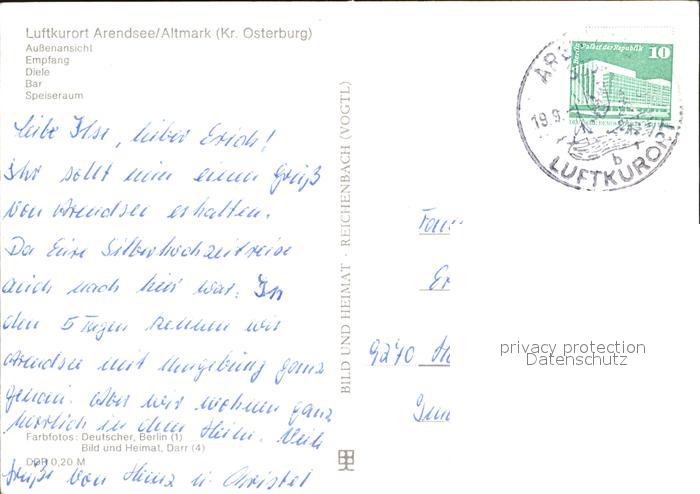 Luftkurort Arendsee/Altmark (Kr. Osterburg)
Außenansicht
Empfang
Diele
Bar
Speiseraum
Liebe Ilse, lieber Erich!
Ihr sollt nun einen Gruß
von Arendsee erhalten.
Da Eure Silberhochzeitreise
auch nach hier war. In
den 5 Tagen kennen wir
Arendsee mit Umgebung ganz
genau. Aber wir wohnen ganz
herrlich in dem Heim. Viele
Grüße von Heinz u. Christel
Farbfotos: Deutscher, Berlin (1)
Bild und Heimat, Darr (4)
DDR 0,20 M
BILD UND HEIMAT · REICHENBACH (VOGTL)
Berlin, Palast der Republik
10
19.9.
b
LUFTKURORT
Fam
Er
9270
privacy protection
Datenschutz